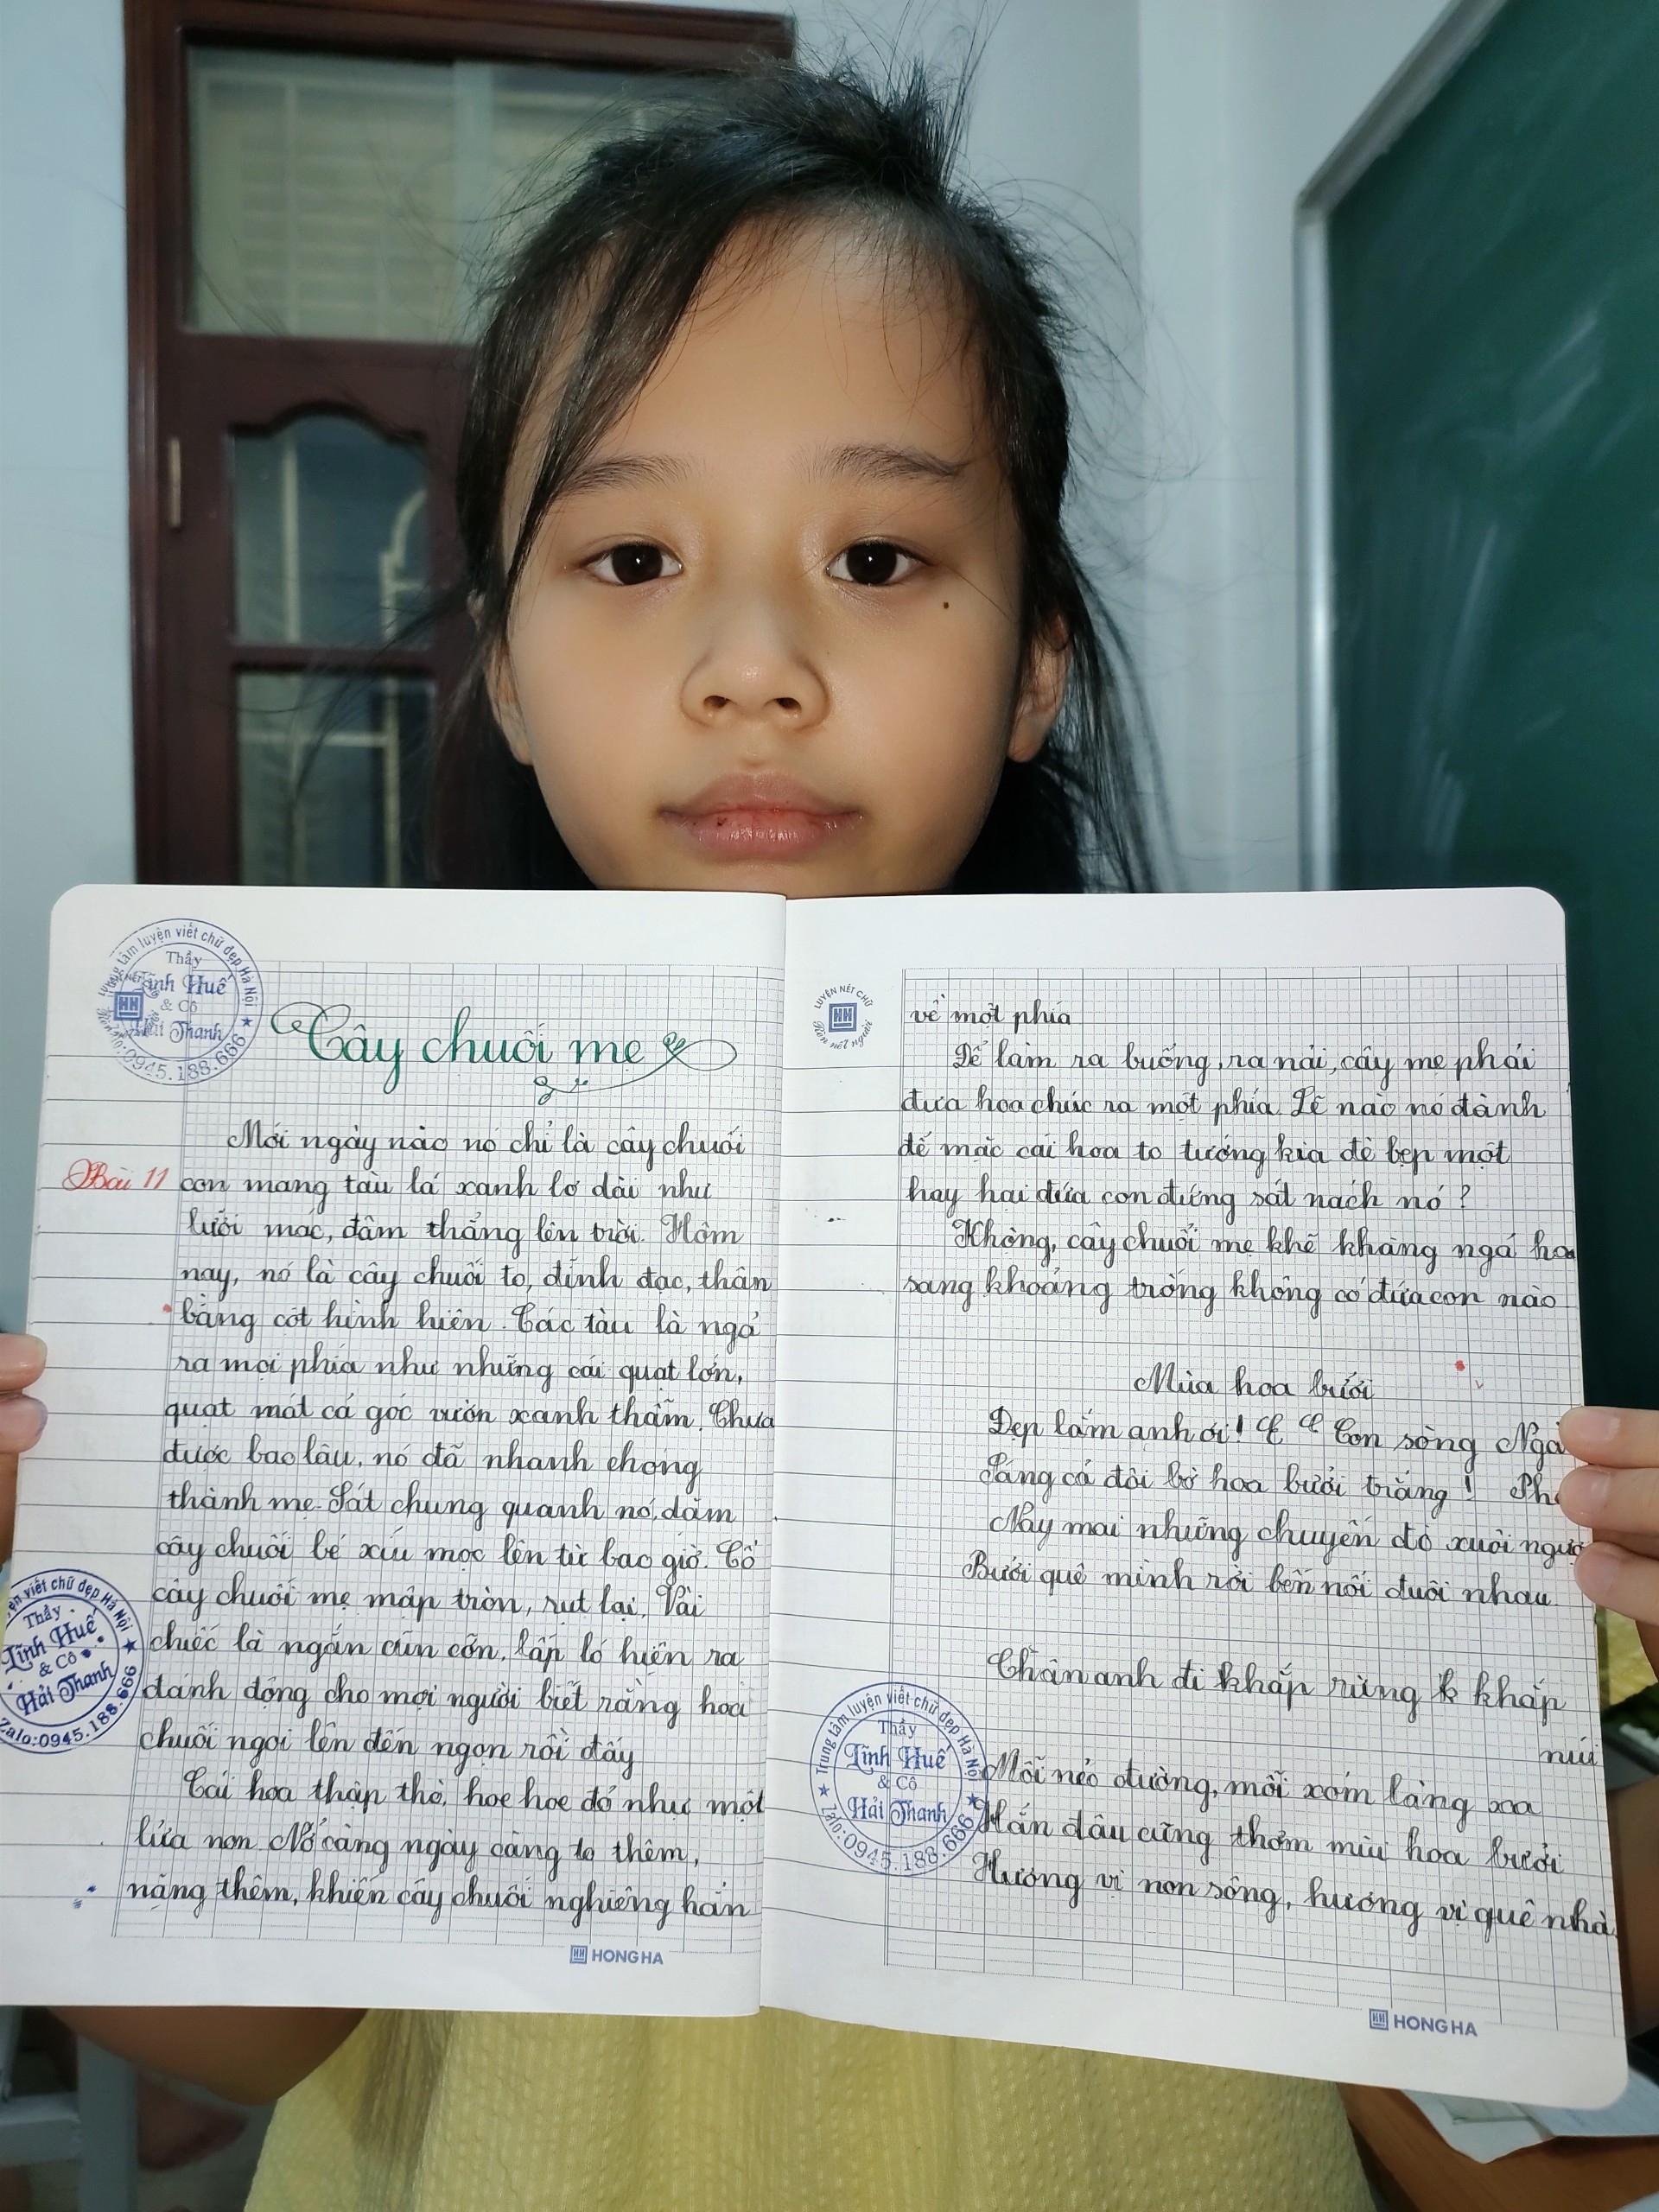 Trung tâm luyện viết chữ đẹp Hà Nội
Thầy
Tĩnh Huế
& Cô
Hải Thanh
0945.188.666
Cây chuối mẹ
Bài 11
Mới ngày nào nó chỉ là cây chuối
con mang tàu lá xanh lơ dài như
lưỡi mác, đâm thẳng lên trời. Hôm
nay, nó là cây chuối to, đĩnh đạc, thân
bằng cột hình hiên. Các tàu là ngả
ra mọi phía như những cái quạt lớn,
quạt mát cả góc vườn xanh thẫm. Chưa
được bao lâu, nó đã nhanh chong
thành mẹ. Sát chung quanh nó, dăm
cây chuối bé xíu mọc lên từ bao giờ. Cổ
cây chuối mẹ mập tròn, rụt lại. Vài
chiếc lá ngắn cũn cỡn, lấp ló hiện ra
đánh động cho mọi người biết rằng hoa
chuối ngoi lên đến ngọn rồi đấy
Cái hoa thập thò, hoe hoe đỏ như một
lửa non Nó càng ngày càng to thêm,
nặng thêm, khiến cây chuối nghiêng hẳn
Thầy
Tĩnh Huế
& Cô
Hải Thanh
Zalo:0945.188.666
HONG HA
LUYỆN NÉT CHỮ
HH
Rèn nết người
về một phía
Để làm ra buồng, ra nải, cây mẹ phải
đưa hoa chúc ra một phía. Lẽ nào nó đành
để mặc cái hoa to tướng kia đè bẹp một
hay hai đứa con đứng sát nách nó?
Không, cây chuối mẹ khẽ khàng ngả hoa
sang khoảng trống không có đứa con nào
Mùa hoa bưởi
Đẹp lắm anh ơi! Con sông Ngà
Sáng cả đôi bờ hoa bưởi trắng! Ph
Nay mai những chuyến đò xuôi ngượ
Bưởi quê mình rời bến nối đuôi nhau.
Chân anh đi khắp rừng k khắp
núi
Mỗi nẻo đường, mỗi xóm làng xa
Hẳn đâu cũng thơm mùi hoa bưởi
Hương vị non sông, hương vị quê nhà.
Trung tâm luyện viết chữ đẹp Hà Nội
Thầy
Tĩnh Huế
& Cô
Hải Thanh
Zalo:0945.188.666
HONG HA